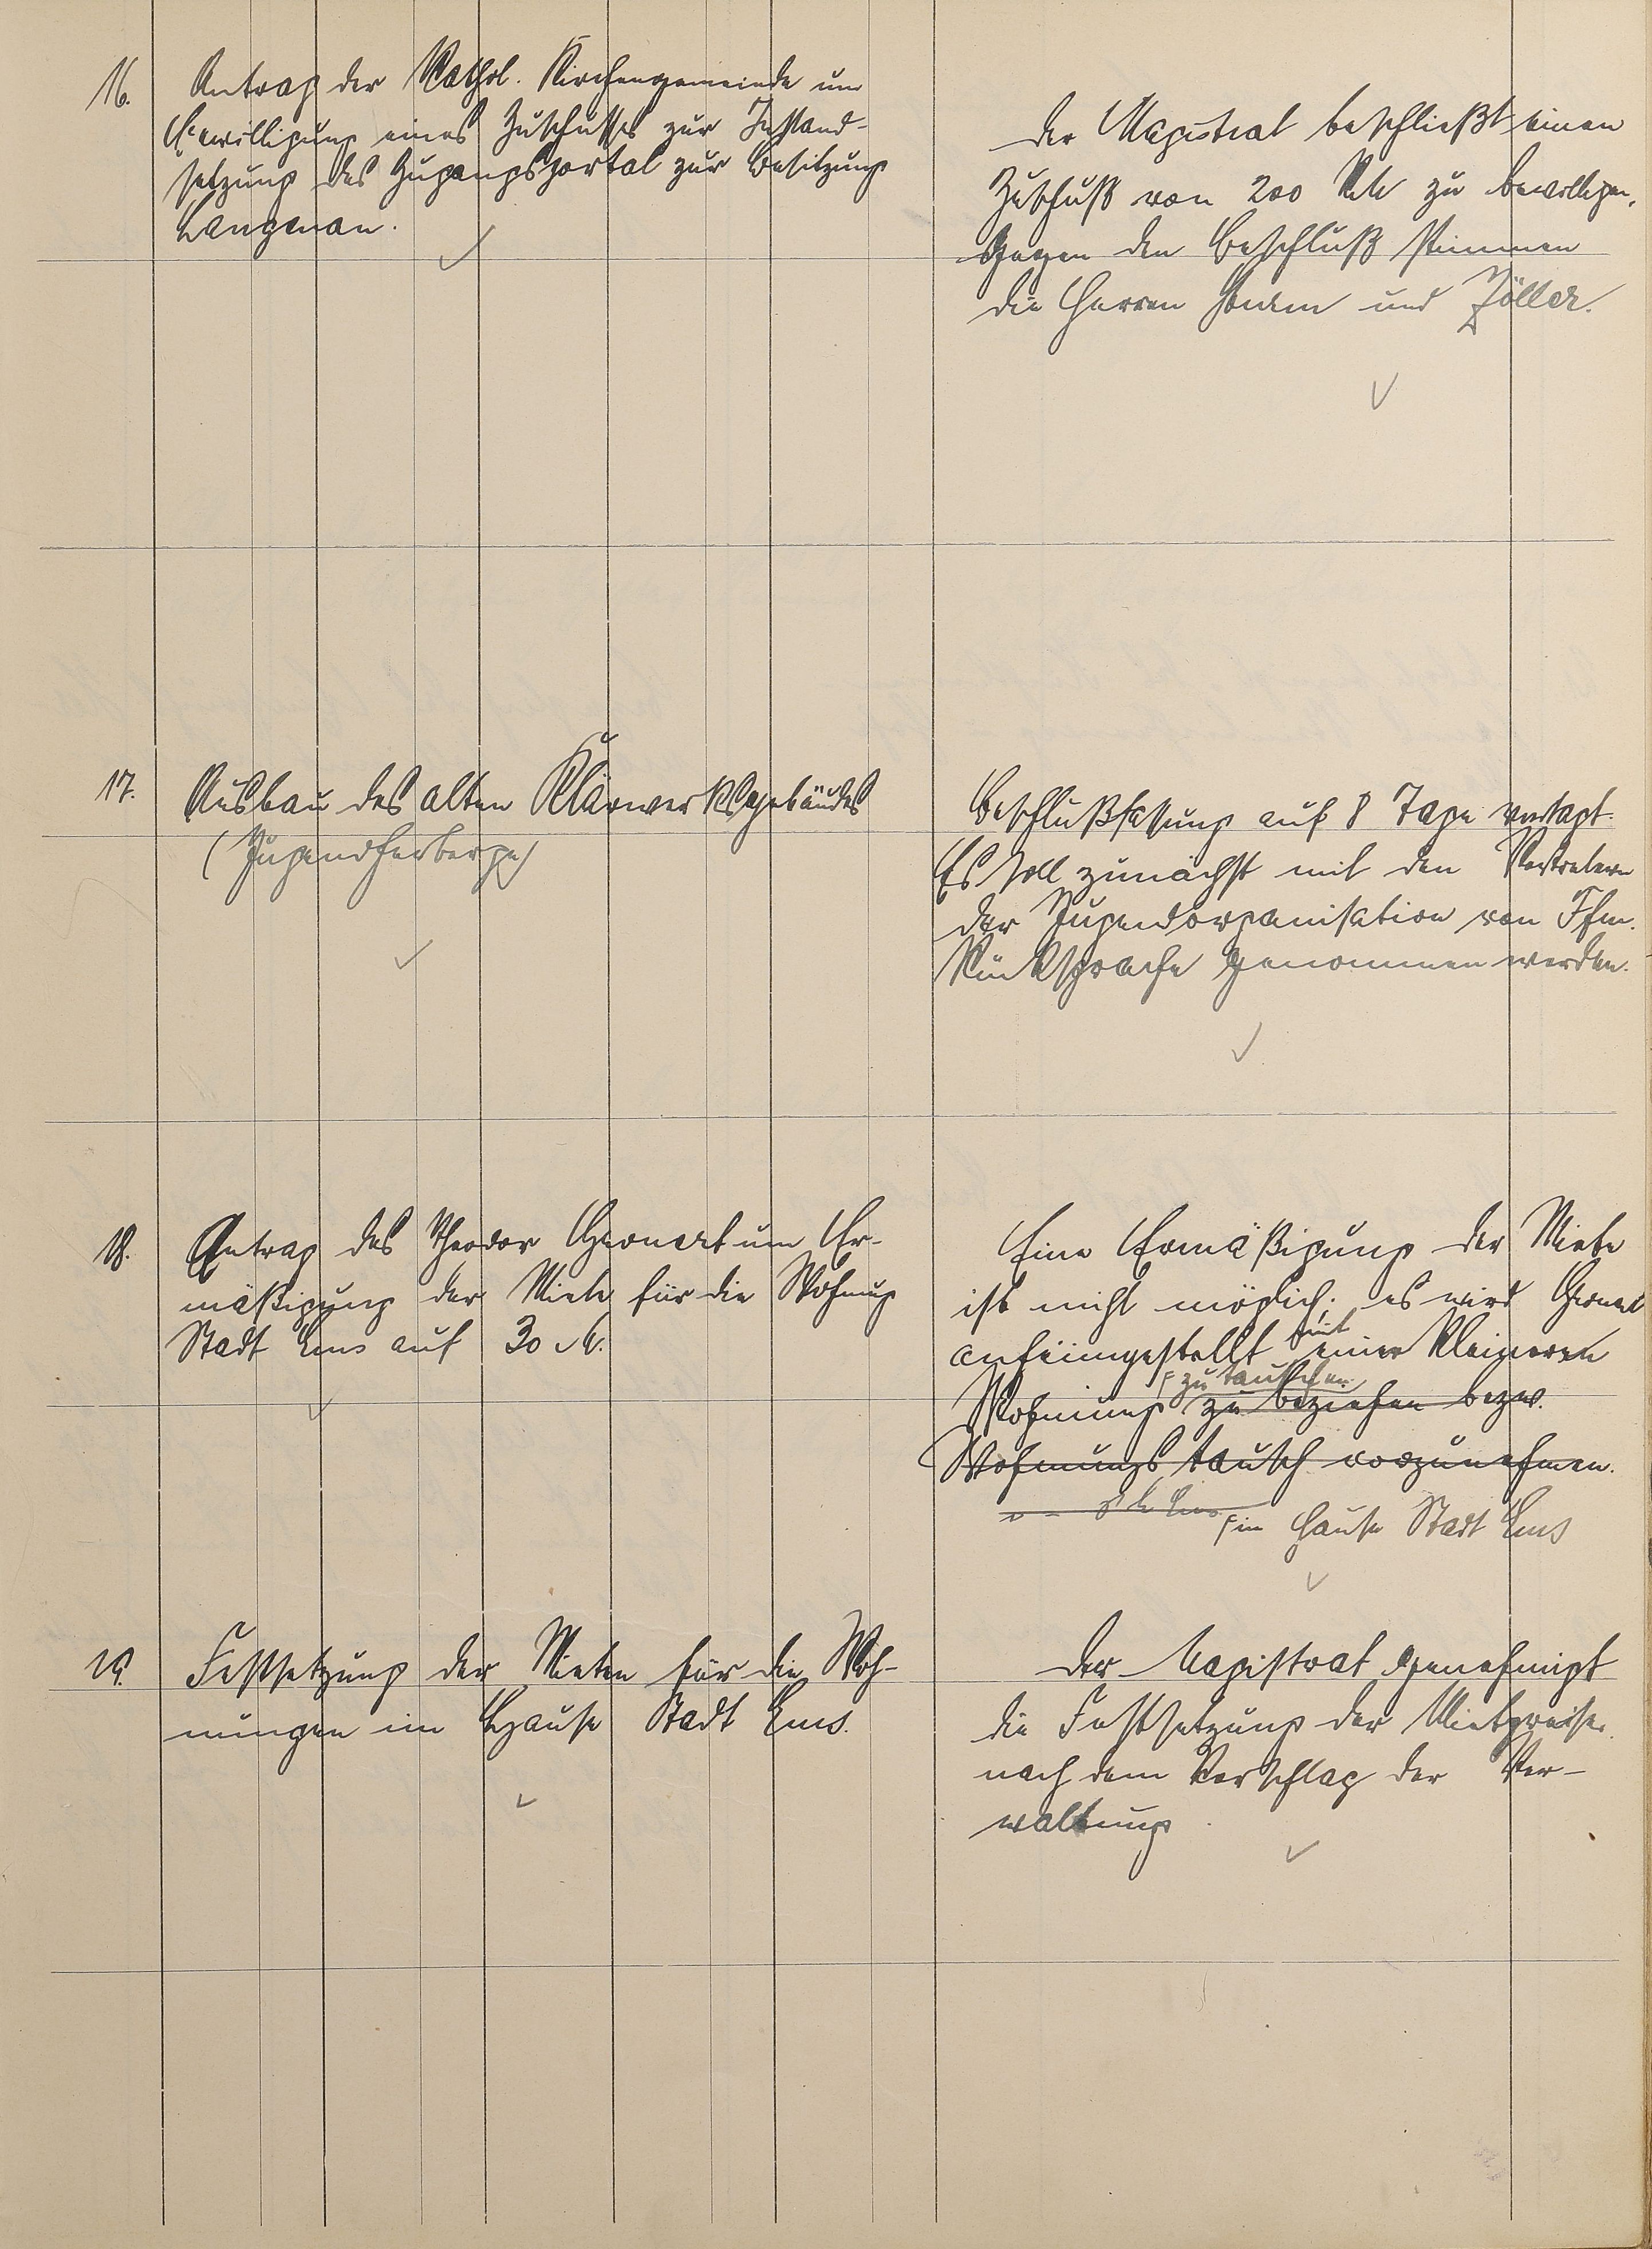 16.
Antrag der Kathol. Kirchengemeinde um
Bewilligung eines Zuschusses zur Instand-
setzung des Zugangsportal zur Besitzung
Langenau.
Der Magistrat beschließt einen
Zuschuß von 200 RM zu bewilligen.
Gegen den Beschluß stimmen
die Herren und Zöller.
17.
Ausbau des alten Klärwerksgebäudes
(Jugendherberge)
Beschlußfassung auf 8 Tage vertagt.
Es soll zunächst mit den Vertretern
der Jugendorganisation von Ffm.
Rücksprache genommen werden.
18.
Antrag des Theodor um Er-
mäßigung der Miete für die Wohnung
Stadt Ems auf 30 M.
Eine Ermäßigung der Miete
ist nicht möglich; es wird
anheimgestellt mit einer kleineren
Wohnung zu beziehen bezw.
zu tauschen.
Wohnungstausch vorzunehmen.
im Hause Stadt Ems
19.
Festsetzung der Mieten für die Woh-
nungen im Hause Stadt Ems.
Der Magistrat genehmigt
die Festsetzung der Mietpreise
nach dem Vorschlag der Ver-
waltung